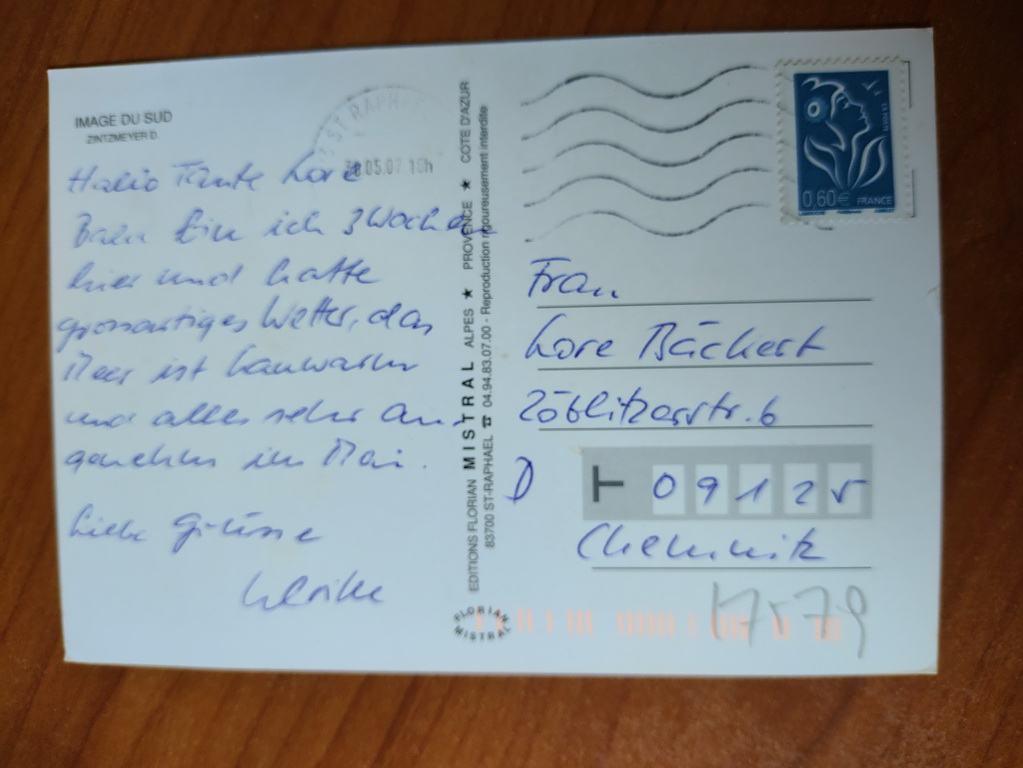 IMAGE DU SUD
ZINTZMEYER D.
Hallo Tante Lore
Bald bin ich 3 Wochen
hier und hatte
grossartiges Wetter, das
Meer ist lauwarm
und alles sehr an-
genehm im Mai.
Liebe Grüsse
Ulrike
ST RAPHA
30.05.07 16h
EDITIONS FLORIAN MISTRAL ALPES ★ PROVENCE ★ COTE D'AZUR
83700 ST-RAPHAEL ☎ 04.94.83.07.00 - Reproduction rigoureusement interdite
FLORIAN
MISTRAL
0,60€ FRANCE
Frau
Lore Bäckert
Zöblitzerstr. 6
D T 09125
Chemnitz